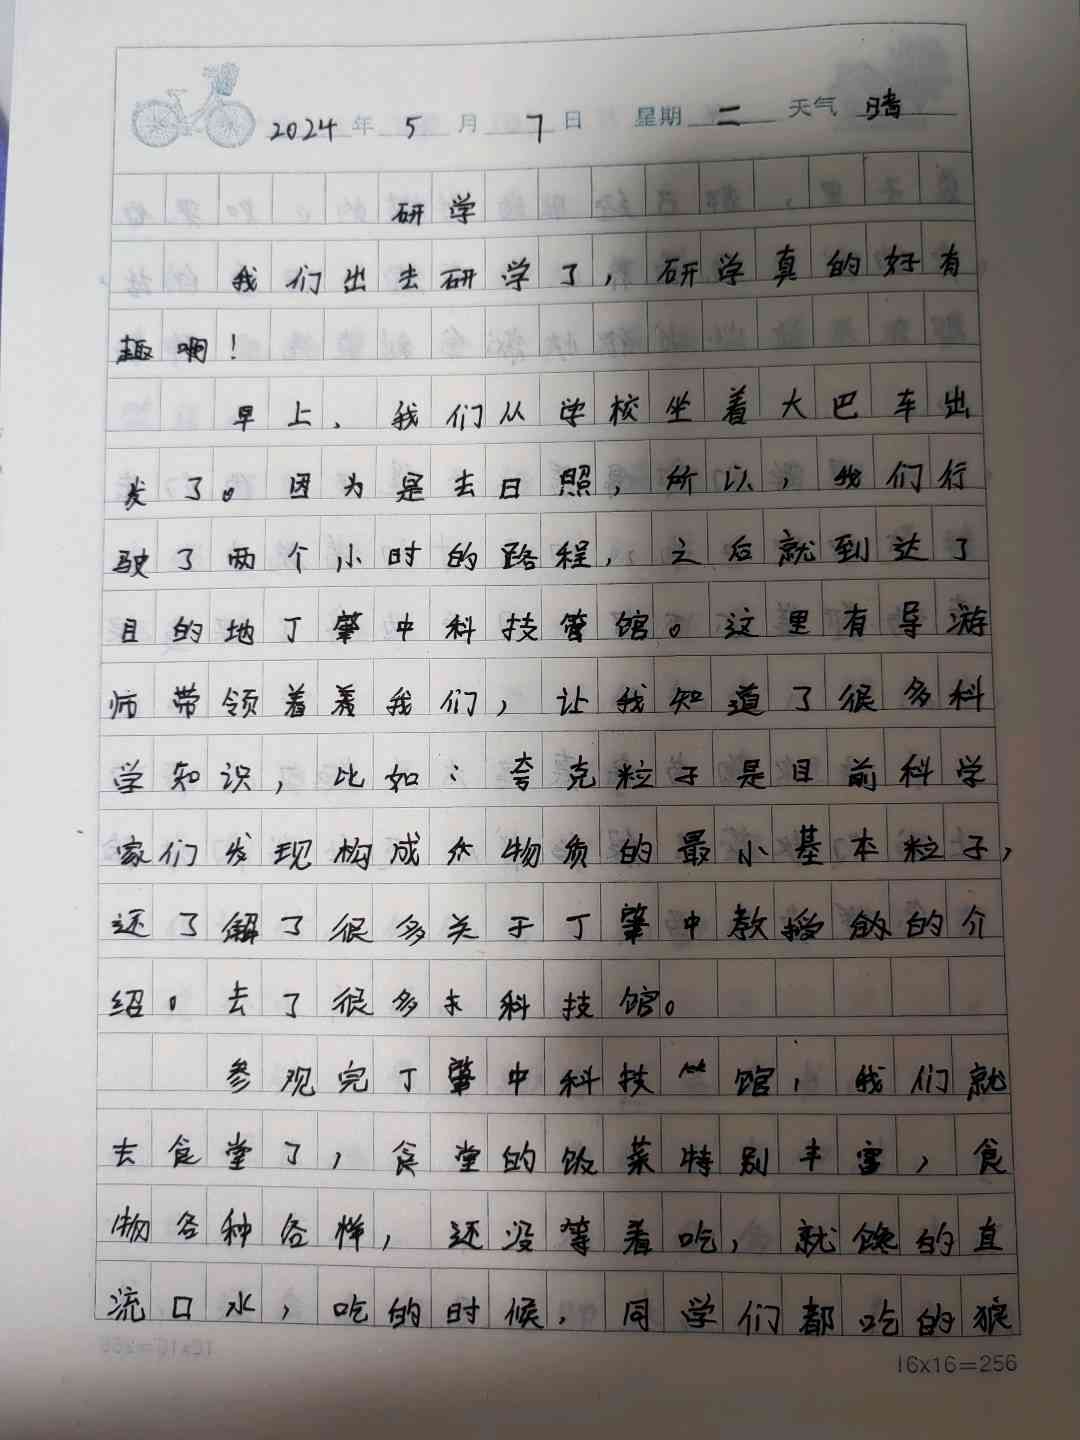 2024年5月7日 星期二 天气晴
研学
我们出去研学了,研学真的好有
趣啊!
早上、我们从学校坐着大巴车出
发了。因为是去日照,所以,我们行
驶了两个小时的路程,之后就到达了
目的地丁肇中科技馆。这里有导游
师带领着着我们,让我知道了很多科
学知识,比如:夸克粒子是目前科学
家们发现构成物质的最小基本粒子,
还了解了很多关于丁肇中教授的介
绍。去了很多科技馆。
参观完丁肇中科技馆,我们就
去食堂了,食堂的饭菜特别丰富,食
物各种各样,还没等着吃,就馋的直
流口水,吃的时候,同学们都吃的狼
16x16=256